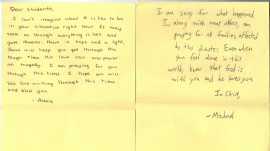 Dear Students,
I can't imagine what it is like to be
in your situation right now. It may
seem as though everything is lost and
gone. However, there is hope and a light.
Jesus will help you get through this
tough time. His love can overpower
any tragedy. I am praying for you
through this time. I hope you will
see God working through this time
and bless you.
I am sorry for what happened.
I, along with many others, am
praying for all families affected
by this disaster. Even when
you feel alone in this
world, know that God is
with you and he loves you.
In Christ,
~Michael